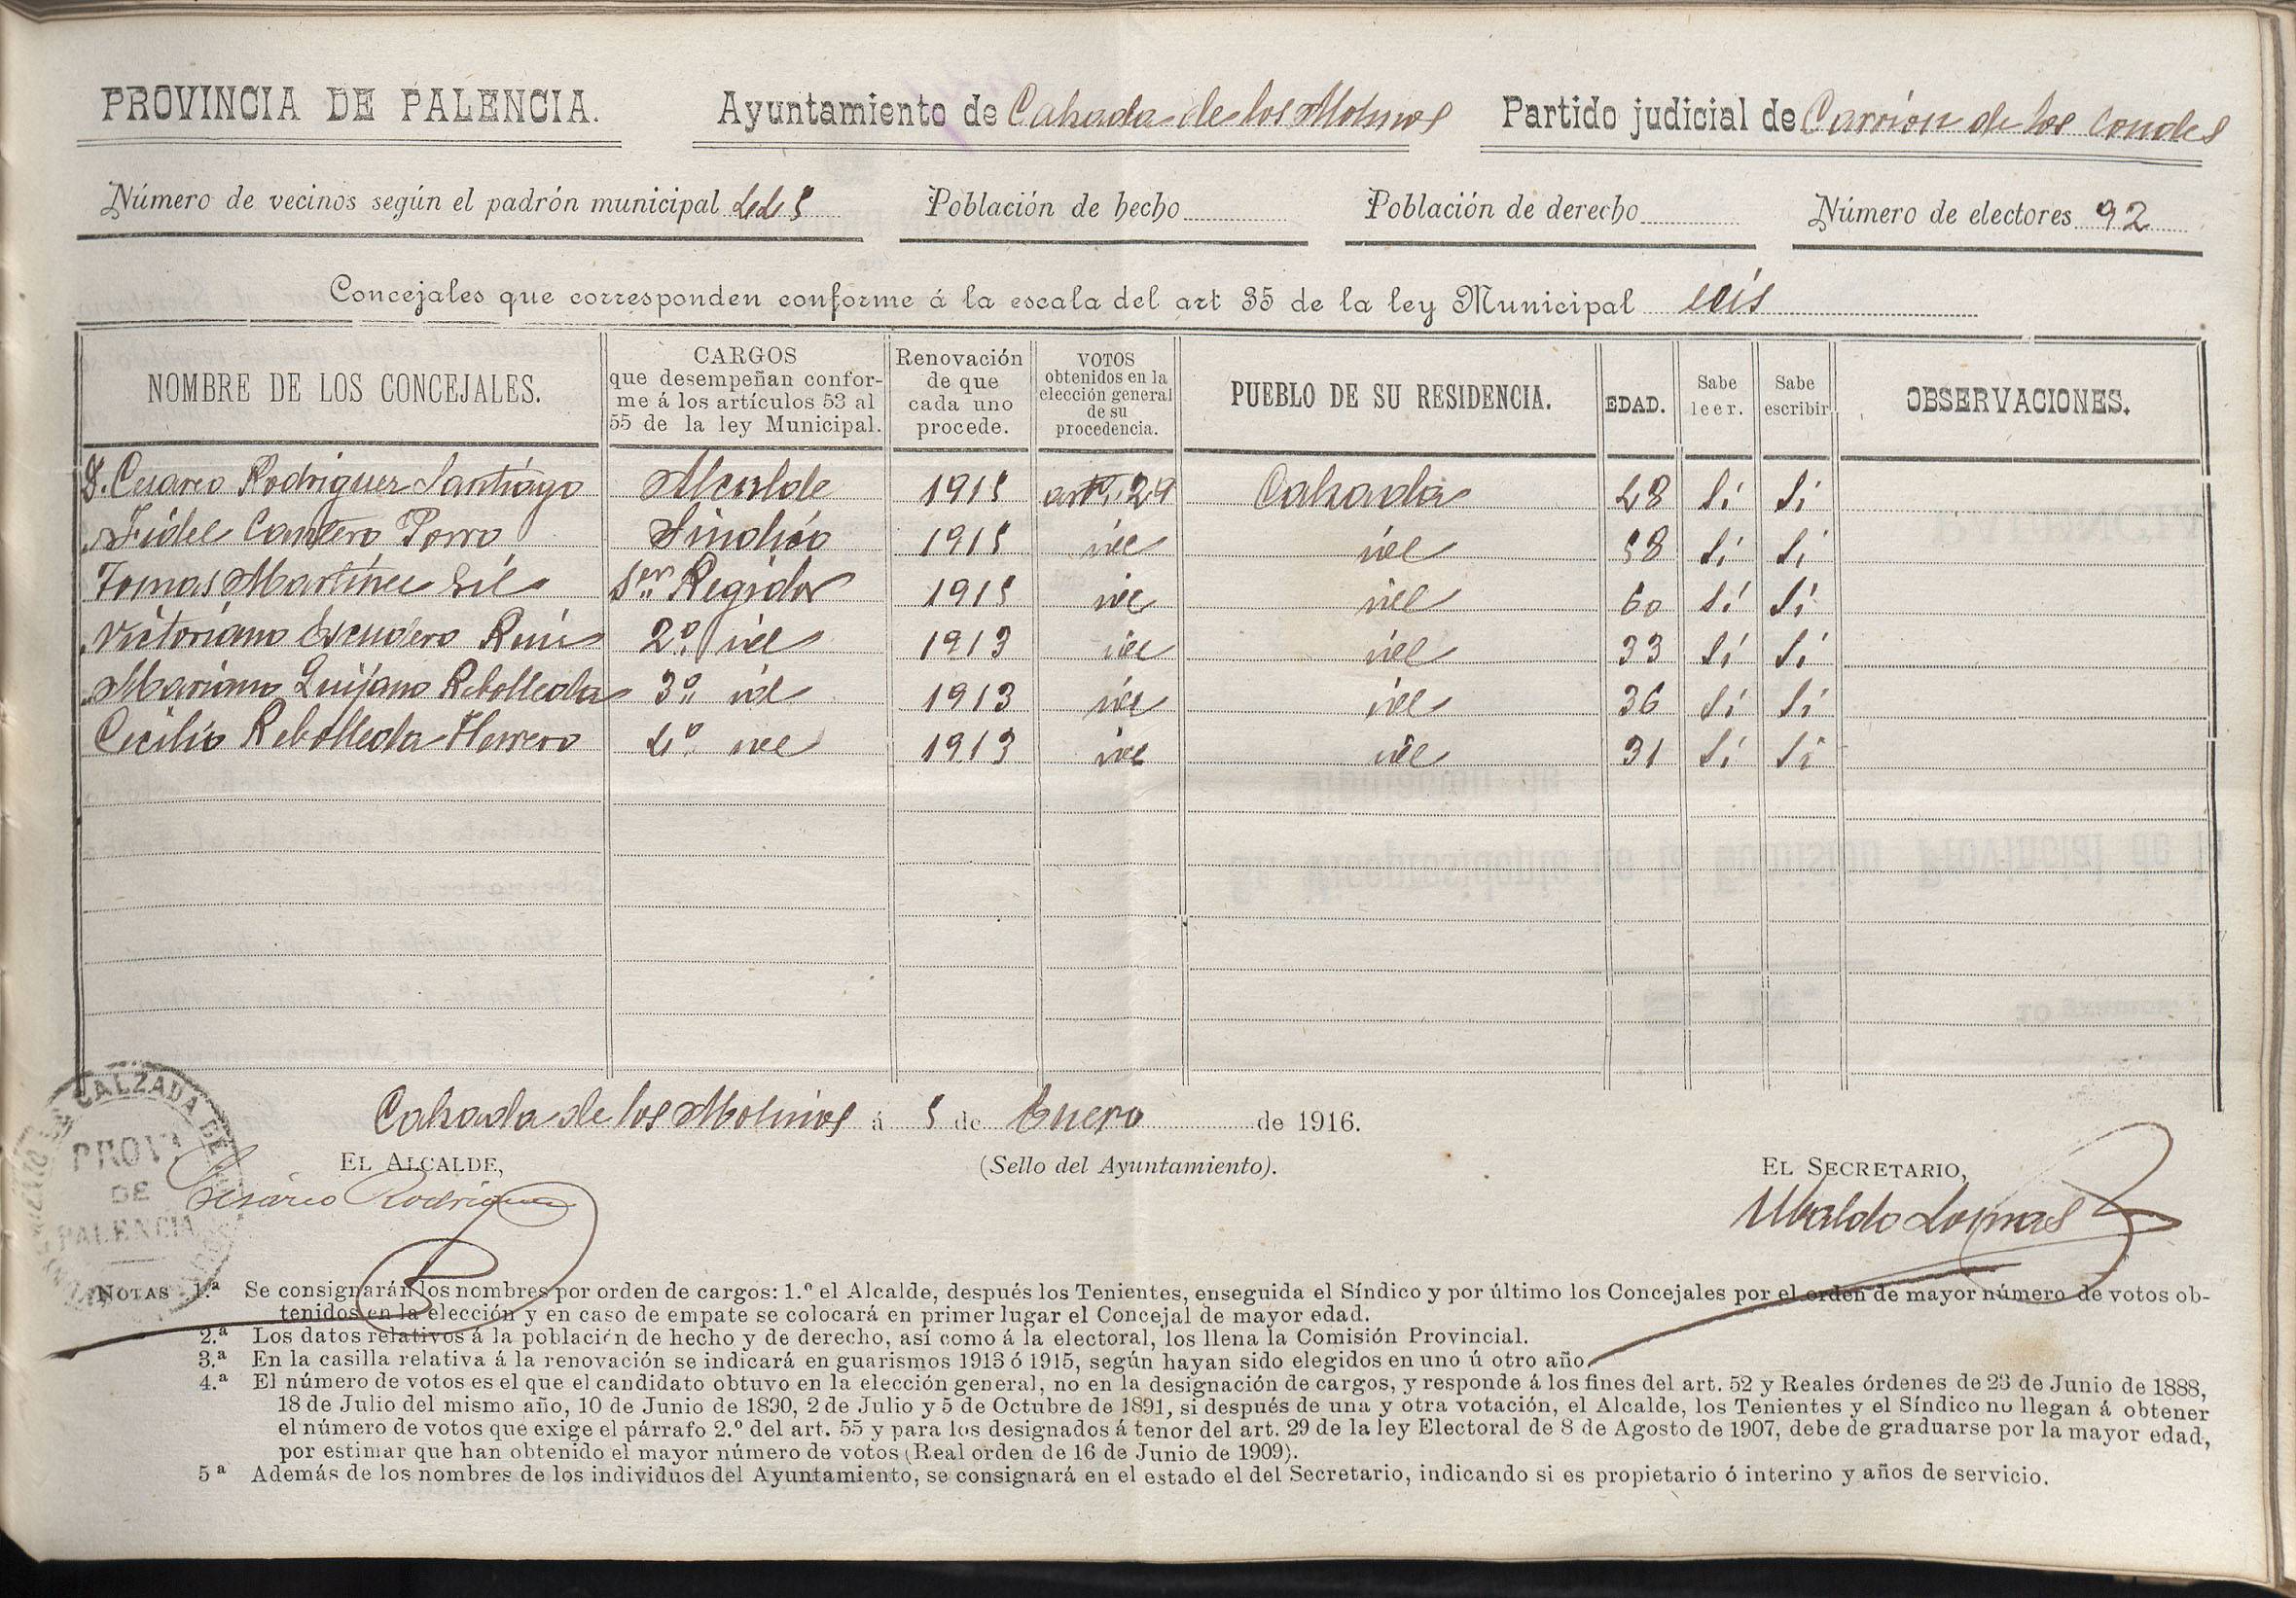 PROVINCIA DE PALENCIA. Ayuntamiento de Calzada de los Molinos Partido judicial de Carrión de los Condes
Número de vecinos según el padrón municipal 445 Población de hecho Población de derecho Número de electores 92
Concejales que corresponden conforme á la escala del art 35 de la ley Municipal seis
NOMBRE DE LOS CONCEJALES. CARGOS que desempeñan conforme á los artículos 53 al 55 de la ley Municipal. Renovación de que cada uno procede. VOTOS obtenidos en la elección general de su procedencia. PUEBLO DE SU RESIDENCIA. EDAD. Sabe leer. Sabe escribir OBSERVACIONES.
D. Cesareo Rodriguez Santiago Alcalde 1915 artº. 29 Calzada 48 Sí Sí
Fidel Cantero Porro Sindico 1915 id id 58 Sí Sí
Tomas Martinez Gil 1er Regidor 1915 id id 60 Sí Sí
Victoriano Escudero Ruiz 2º id 1913 id id 33 Sí Sí
Mariano Quijano Rebolleda 3º id 1913 id id 36 Sí Sí
Cecilio Rebolleda Herrero 4º id 1913 id id 31 Sí Sí
Calzada de los Molinos á 5 de Enero de 1916.
CALZADA DE
PROVª
DE
PALENCIA
EL ALCALDE, (Sello del Ayuntamiento). EL SECRETARIO,
Cesáreo Rodriguez Ubaldo Lomas
NOTAS 1.ª Se consignarán los nombres por orden de cargos: 1.º el Alcalde, después los Tenientes, enseguida el Síndico y por último los Concejales por el orden de mayor número de votos ob-
tenidos en la elección y en caso de empate se colocará en primer lugar el Concejal de mayor edad.
2.ª Los datos relativos á la población de hecho y de derecho, así como á la electoral, los llena la Comisión Provincial.
3.ª En la casilla relativa á la renovación se indicará en guarismos 1913 ó 1915, según hayan sido elegidos en uno ú otro año.
4.ª El número de votos es el que el candidato obtuvo en la elección general, no en la designación de cargos, y responde á los fines del art. 52 y Reales órdenes de 23 de Junio de 1888,
18 de Julio del mismo año, 10 de Junio de 1890, 2 de Julio y 5 de Octubre de 1891, si después de una y otra votación, el Alcalde, los Tenientes y el Síndico no llegan á obtener
el número de votos que exige el párrafo 2.º del art. 55 y para los designados á tenor del art. 29 de la ley Electoral de 8 de Agosto de 1907, debe de graduarse por la mayor edad,
por estimar que han obtenido el mayor número de votos (Real orden de 16 de Junio de 1909).
5ª Además de los nombres de los individuos del Ayuntamiento, se consignará en el estado el del Secretario, indicando si es propietario ó interino y años de servicio.